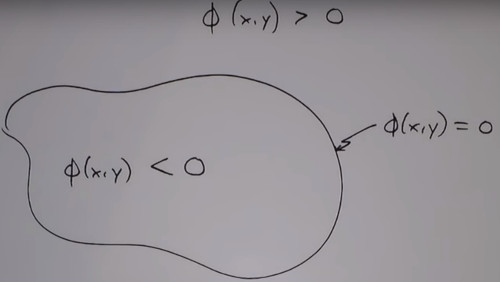 ϕ(x,y) > 0
ϕ(x,y) = 0
ϕ(x,y) < 0